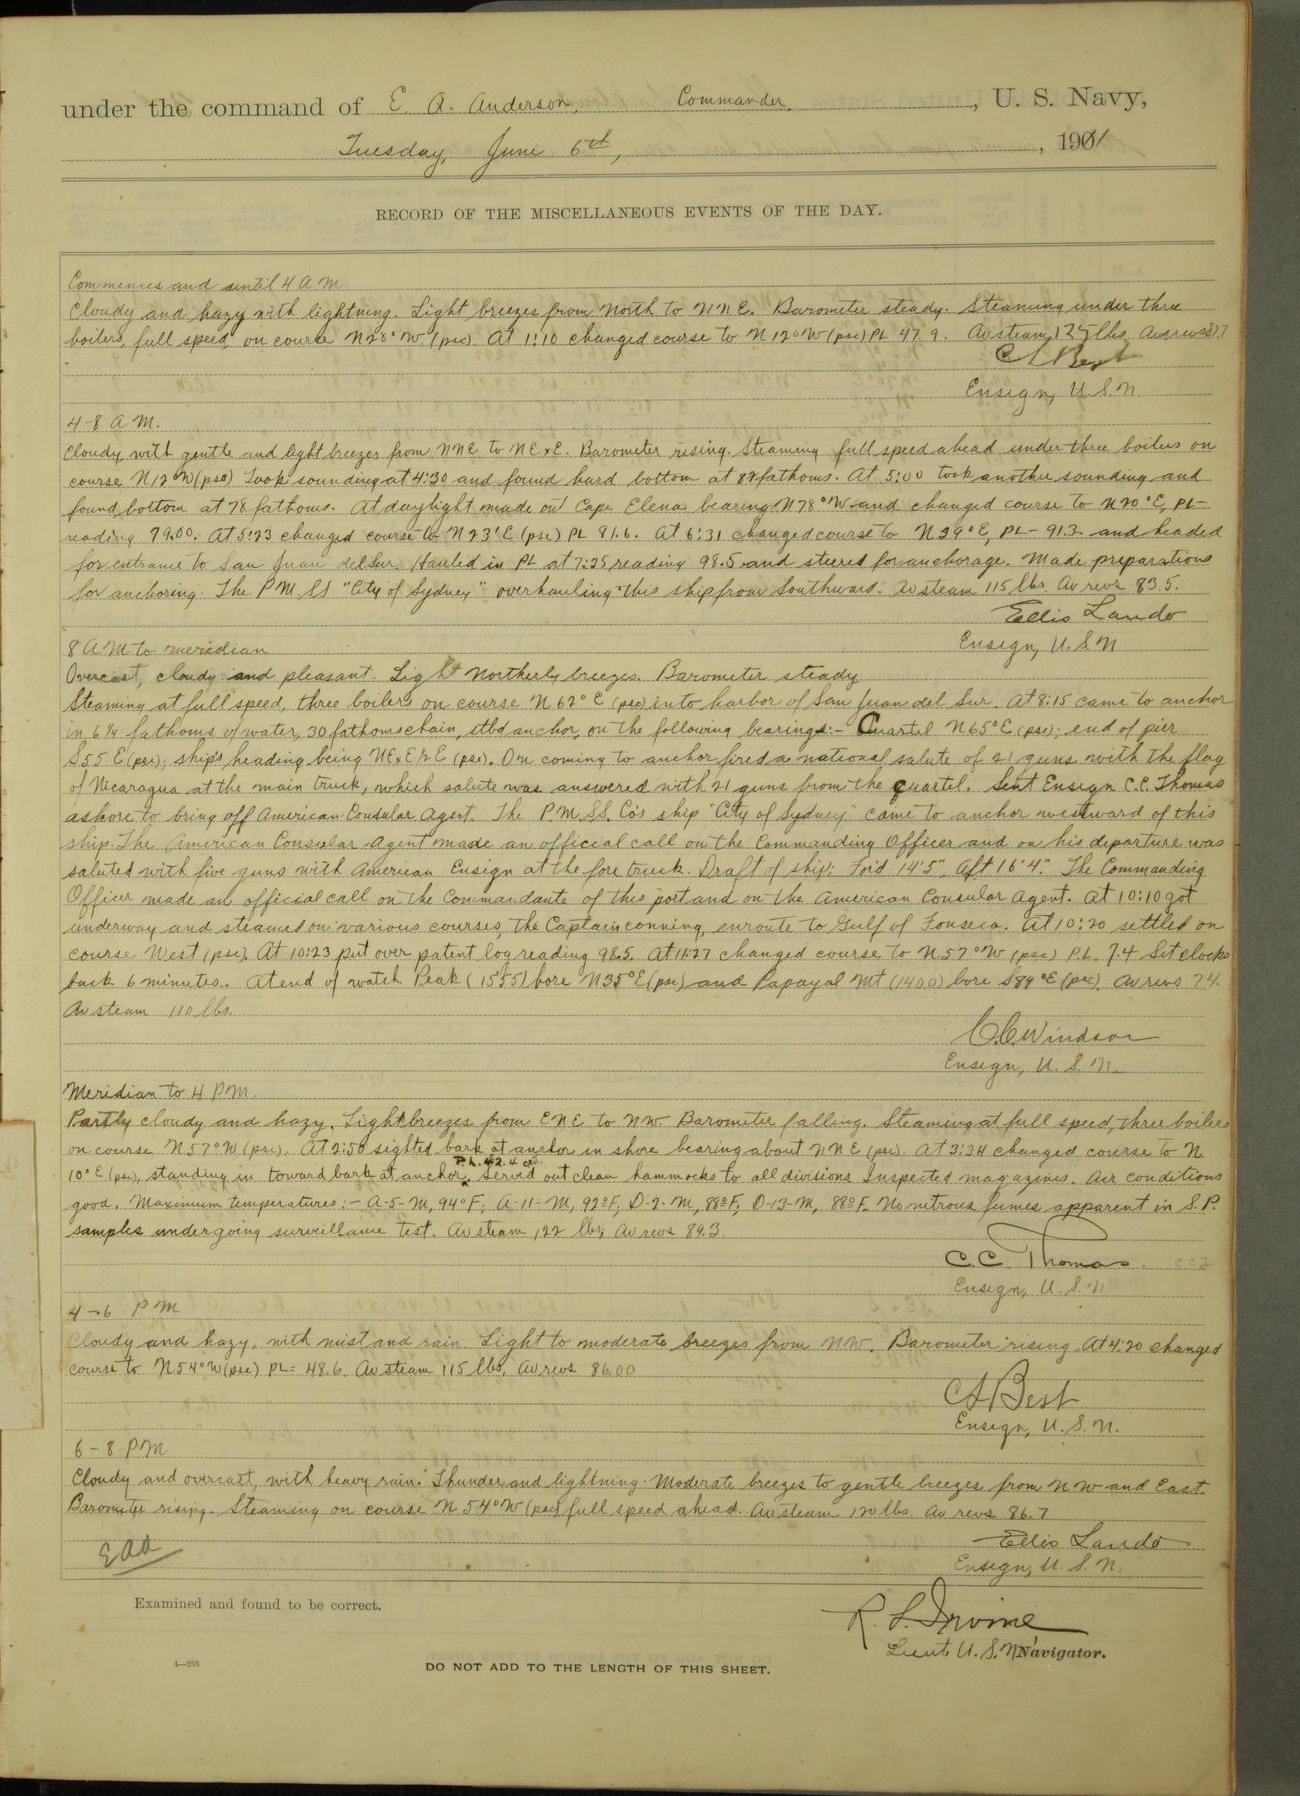 under the command of E. A. Anderson, Commander, U. S. Navy,
Tuesday, June 6th, 1901
RECORD OF THE MISCELLANEOUS EVENTS OF THE DAY.
Commences and until 4 A M.
Cloudy and hazy with lightning. Light breezes from North to NNE. Barometer steady. Steaming under three
boilers, full speed, on course N28°W (psc). At 1:10 changed course to N12°W (psc) PL 47.9. Av steam, 125 lbs. Av revs
C A Best
Ensign, U. S. N.
4-8 A M.
Cloudy with gentle and light breezes from NNE to NExE. Barometer rising. Steaming full speed ahead under three boilers on
course N12°W (psc) Took sounding at 4:30 and found hard bottom at 82 fathoms. At 5:00 took another sounding and
found bottom at 78 fathoms. At daylight made out Cape Elena bearing N78°W and changed course to N20°E, PL-
reading 79.00. At 5:23 changed course to N23°E (psc) PL 81.6. At 6:31 changed course to N39°E, PL- 91.3. and headed
for entrance to San Juan del Sur. Hauled in PL at 7:25 reading 98.5 and steered for anchorage. Made preparations
for anchoring. The P.M.SS "City of Sydney" overhauling this ship from Southward. Av steam 115 lbs. Av revs 83.5.
Ellis Lando
Ensign, U. S. N
8 A M to meridian
Overcast, cloudy and pleasant. Light Northerly breezes. Barometer steady
Steaming at full speed, three boilers on course N62°E (psc) into harbor of San Juan del Sur. At 8:15 came to anchor
in 6¼ fathoms of water, 30 fathoms chain, stbd anchor, on the following bearings:- Cuartel N65°E (psc); end of pier
S55E (psc); ship's heading being NExE½E (psc). On coming to anchor fired a national salute of 21 guns with the flag
of Nicaragua at the main truck, which salute was answered with 21 guns from the quartel. Sent Ensign C.C. Thomas
ashore to bring off American Consular Agent. The P.M.SS. Co's ship "City of Sydney" came to anchor westward of this
ship. The American Consular Agent made an official call on the Commanding Officer and on his departure was
saluted with five guns with American Ensign at the fore truck. Draft of ship: For'd 14'5", Aft 16'4". The Commanding
Officer made an official call on the Commandante of this port and on the American Consular Agent. At 10:10 got
underway and steamed on various courses, the Captain conning, enroute to Gulf of Fonseca. At 10:20 settled on
course West (psc). At 10:23 put over patent log reading 98.5. At 11:27 changed course to N57°W (psc) P.L. 7.4 Set clocks
back 6 minutes. At end of watch Peak (1555) bore N35°E (psc) and Papayal Mt (1400) bore S89°E (psc). Av revs 74.
Av steam 110 lbs.
C.C. Windsor
Ensign, U. S. N.
Meridian to 4 P M.
Partly cloudy and hazy. Light breezes from ENE to NW. Barometer falling. Steaming at full speed, three boilers
on course N57°W (psc). At 2:50 sighted bark at anchor in shore bearing about NNE (psc). At 3:34 changed course to N
P.L. 42.4
10°E (psc), standing in toward bark at anchor. Served out clean hammocks to all divisions. Inspected magazines. Air conditions
good. Maximum temperatures:- A-5-M, 94°F; A-11-M, 92°F; D-2-M, 88°F; D-13-M, 88°F. No nitrous fumes apparent in S.P.
samples undergoing surveillance test. Av steam 122 lbs; Av revs 89.3.
C. C. Thomas.
Ensign, U. S. N
4-6 P M
Cloudy and hazy, with mist and rain. Light to moderate breezes from NW. Barometer rising. At 4:20 changed
course to N54°W (psc) PL= 48.6. Av steam 115 lbs, Av revs 86.00
C A Best
Ensign, U. S. N.
6-8 P M
Cloudy and overcast, with heavy rain. Thunder and lightning. Moderate breezes to gentle breezes from NW and East.
Barometer rising. Steaming on course N 54°W (psc) full speed ahead. Av steam 120 lbs. Av revs 86.7
EAA
Ellis Lando
Ensign, U. S. N.
Examined and found to be correct.
R. L. Irvine
Lieut. U. S. N. Navigator.
DO NOT ADD TO THE LENGTH OF THIS SHEET.